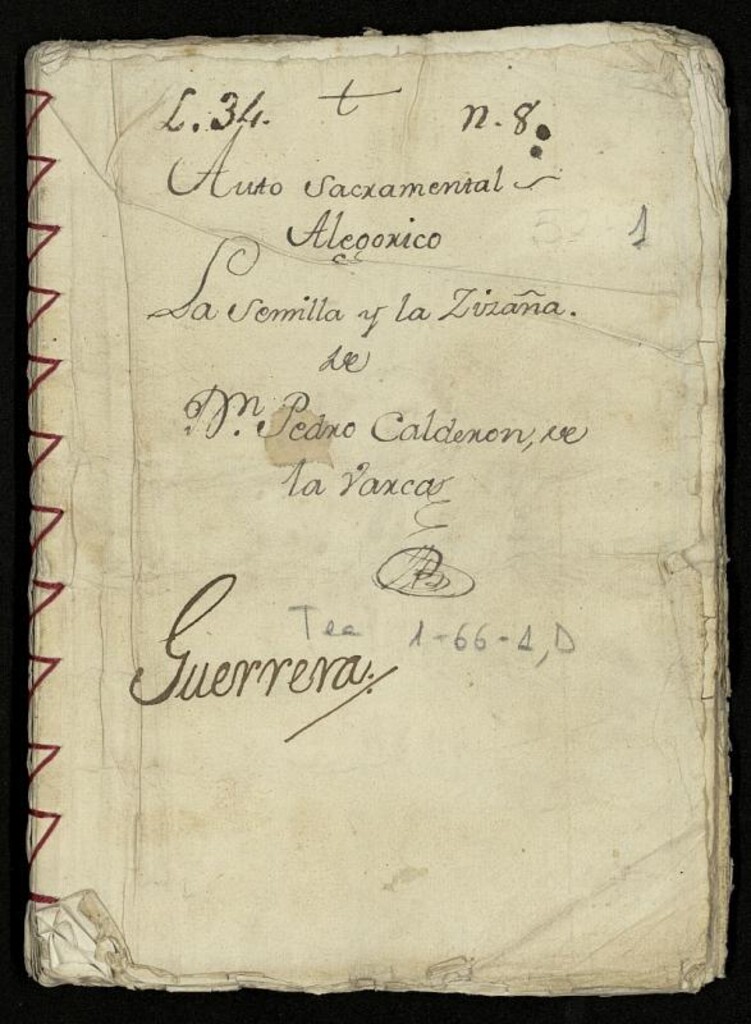 L. 34. t n. 8.
Auto Sacramental
Alegorico 1
La Semilla y la Zizaña.
de
Dn. Pedro Calderon, de
la Varca
Tea 1-66-1, D
Guerrera.